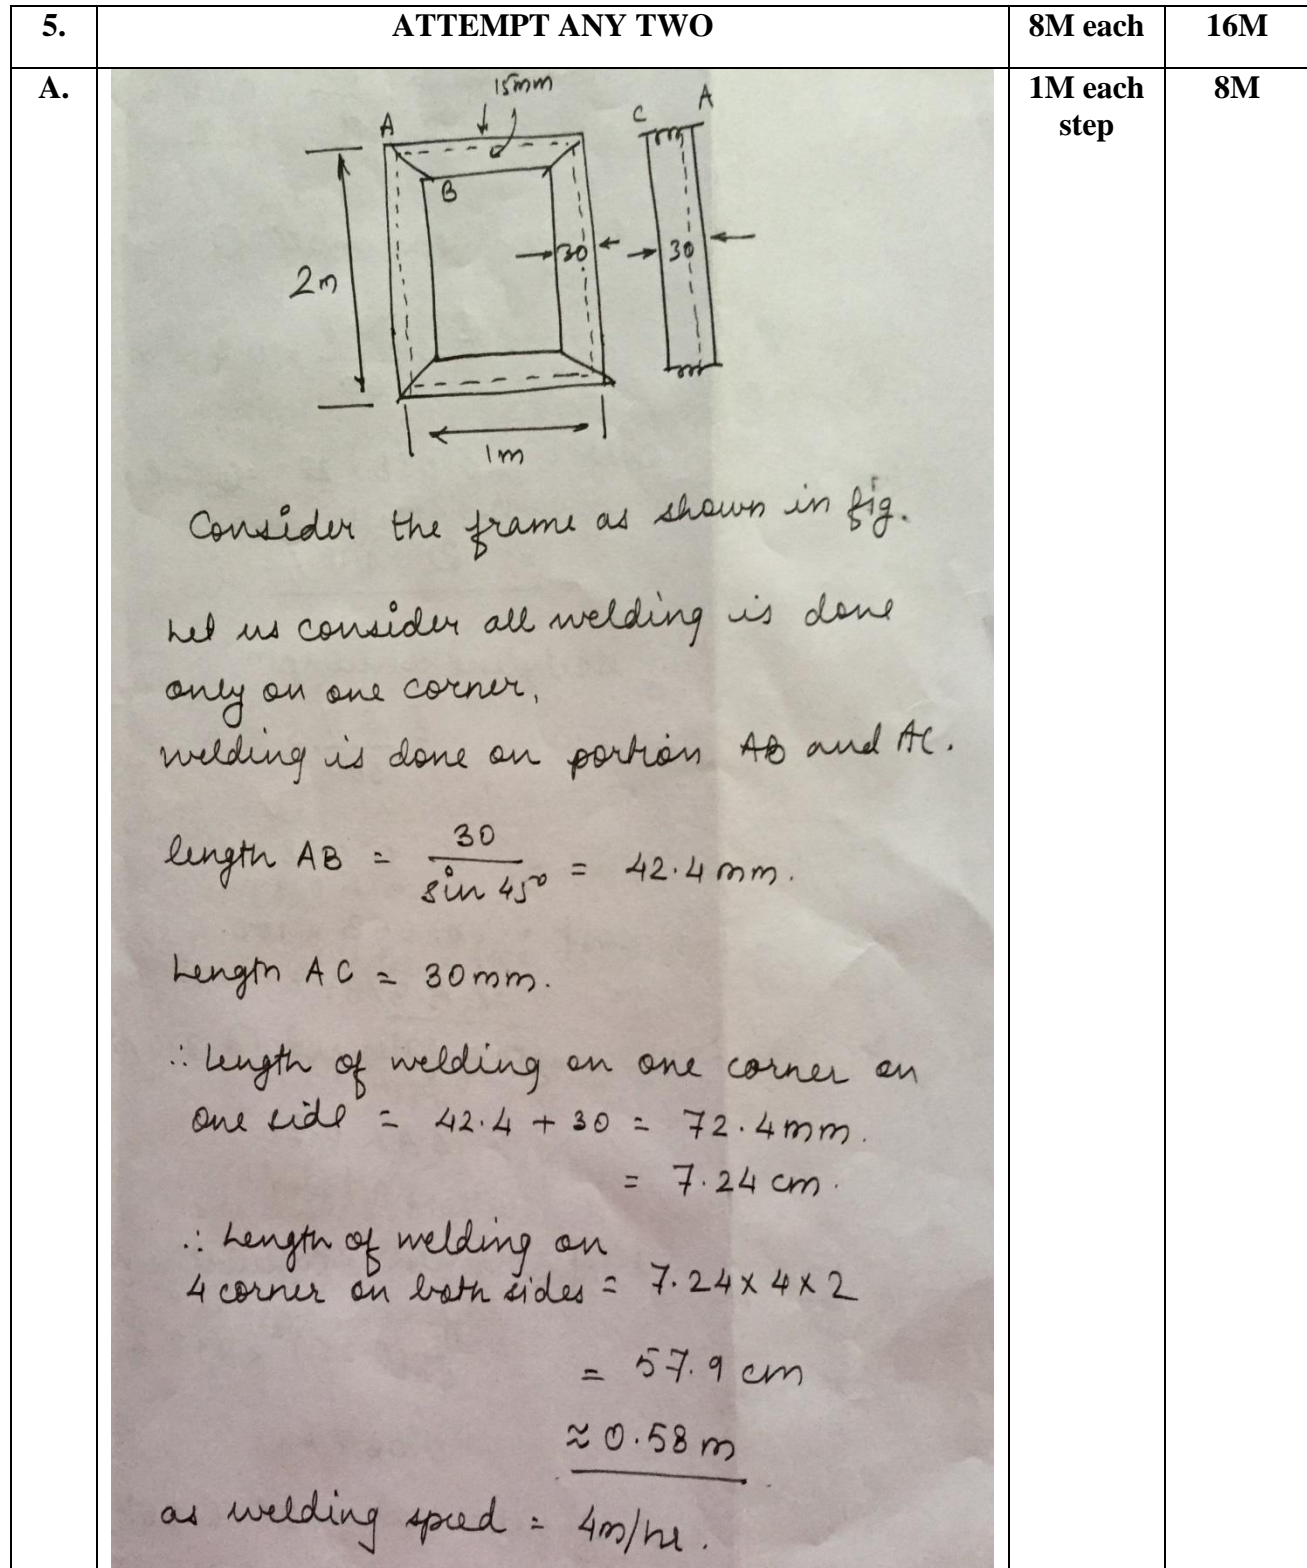 5. ATTEMPT ANY TWO 8M each 16M
A. 1M each step 8M
15mm
A
B
2m
30
1m
C A
30
Consider the frame as shown in fig.
Let us consider all welding is done
only on one corner,
welding is done on portion AB and AC.
length AB = 30 / sin 45° = 42.4 mm.
Length AC = 30mm.
∴ Length of welding on one corner on
one side = 42.4 + 30 = 72.4mm.
= 7.24 cm.
∴ Length of welding on
4 corner on both sides = 7.24 x 4 x 2
= 57.9 cm
≈ 0.58 m
as welding speed = 4m/hr.